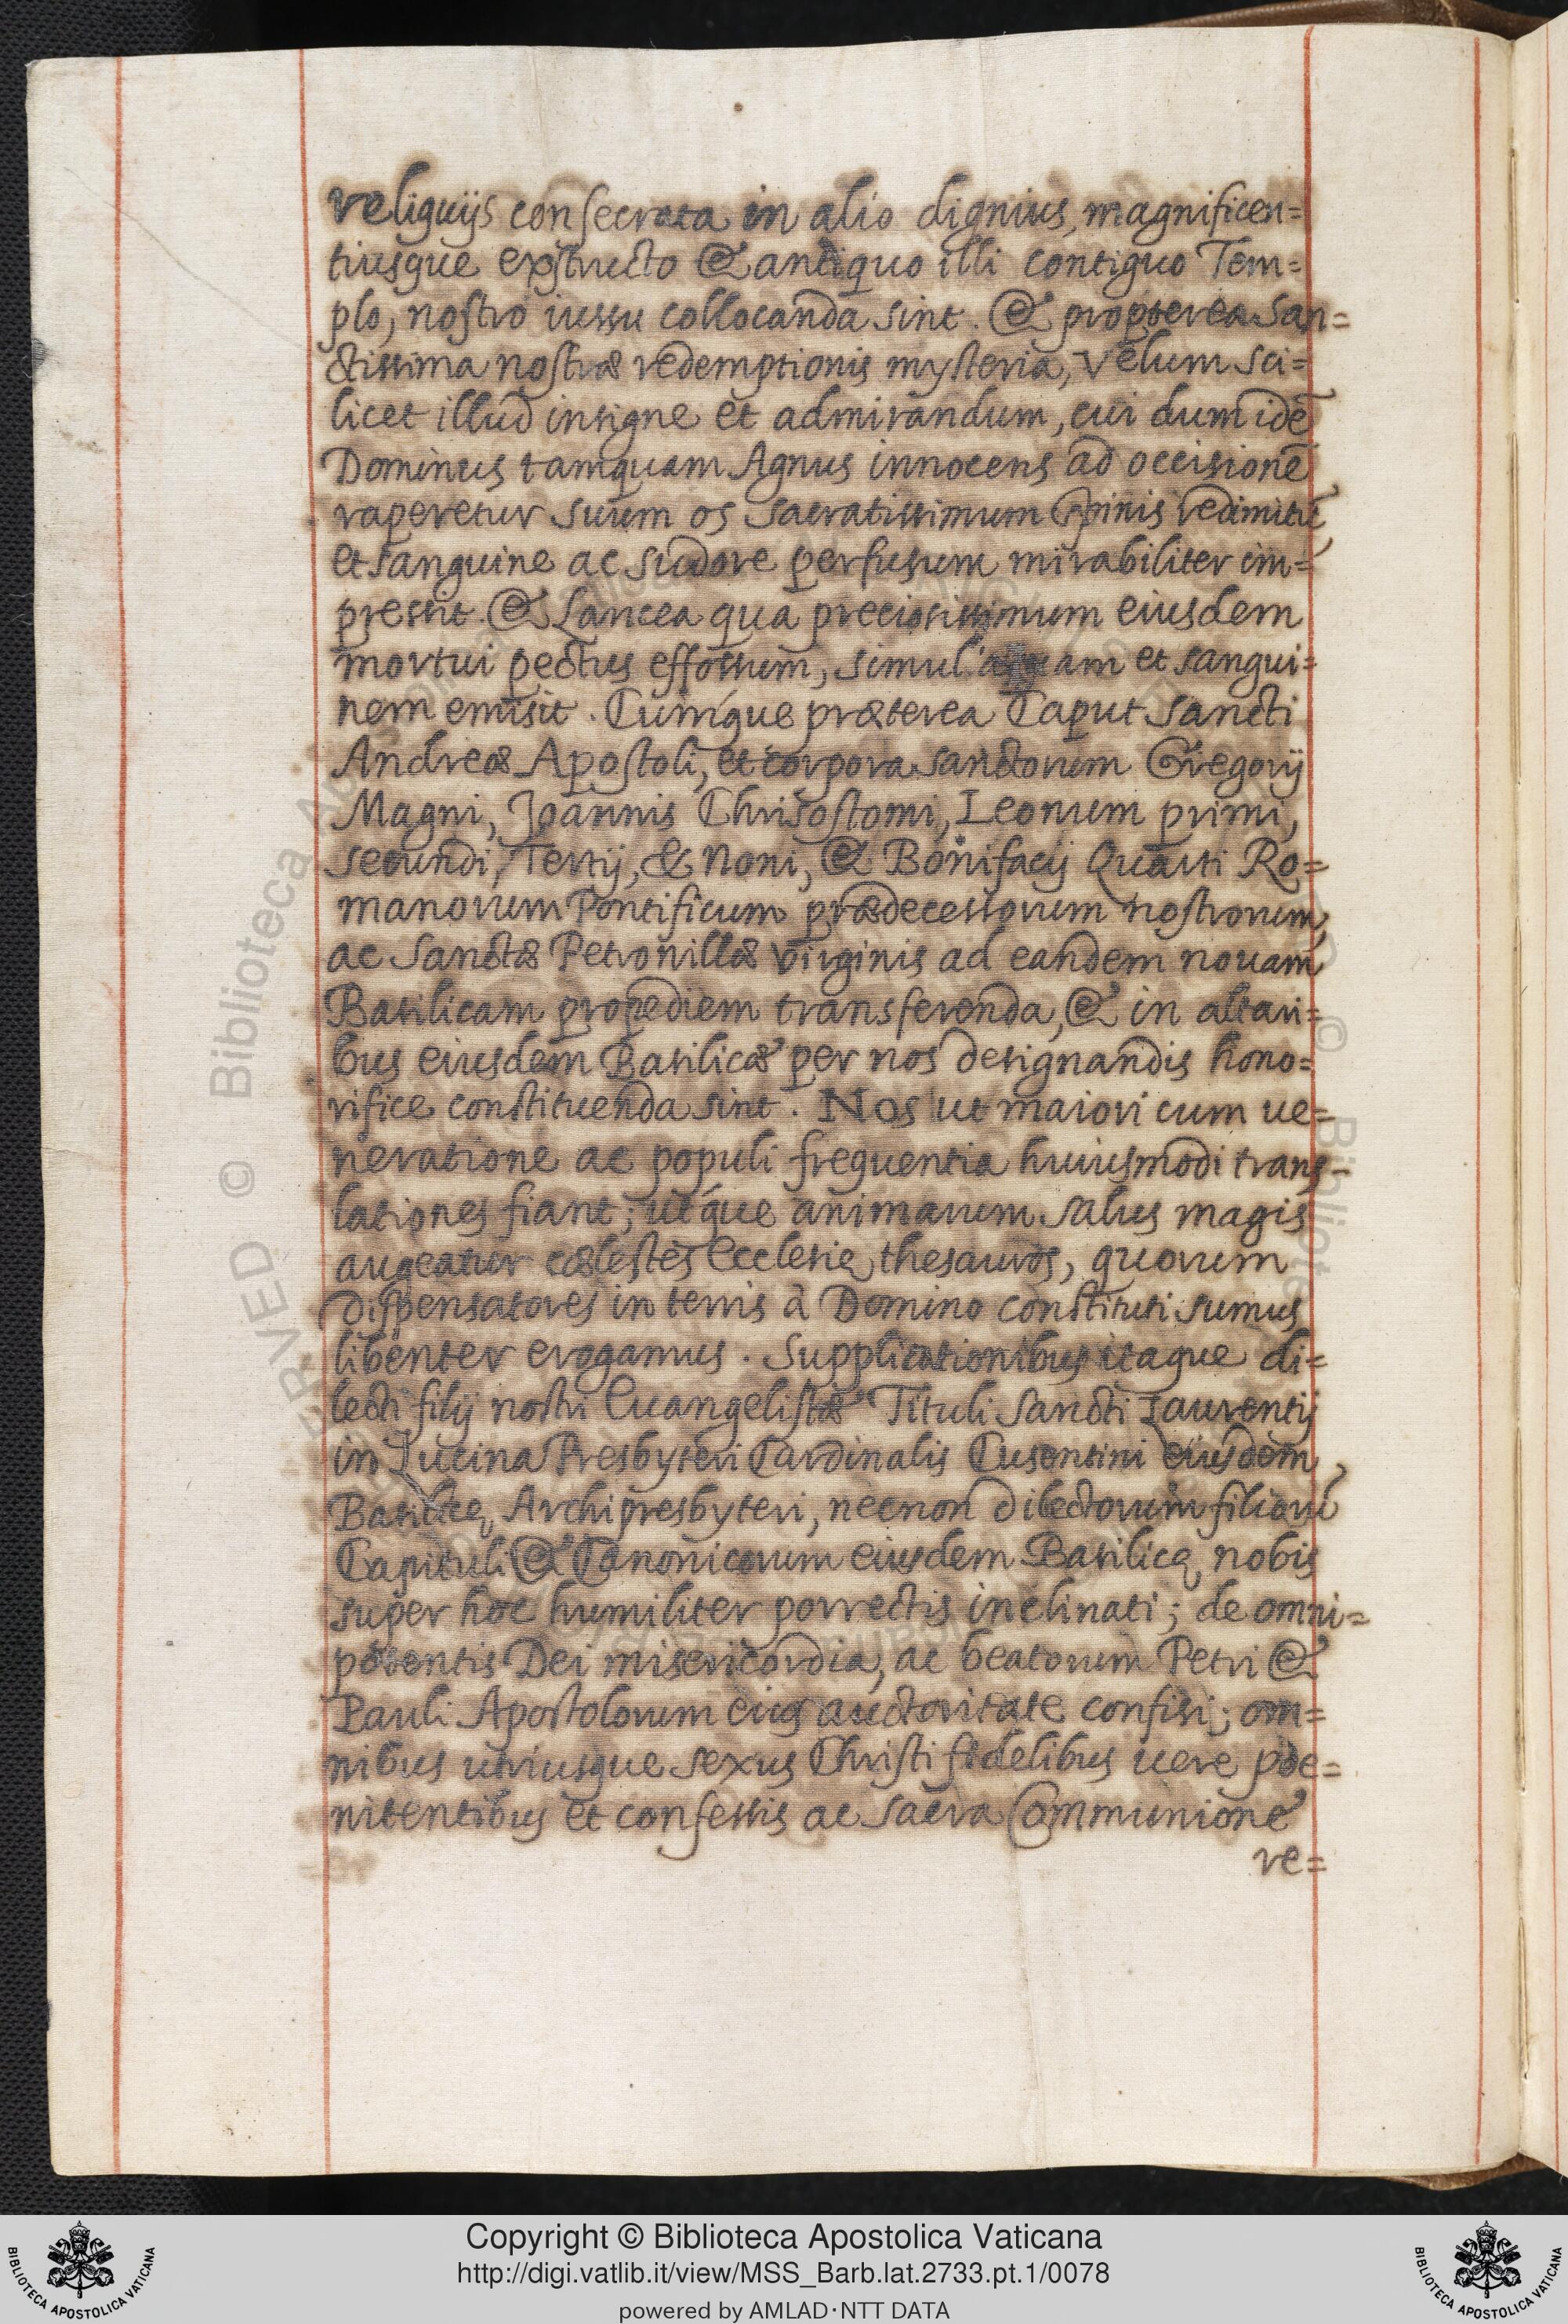 reliquijs consecrata in alio dignius, magnificen=
tiusque exstructo & antiquo illi contiguo Tem=
plo, nostro iussu collocanda sint. & propterea san=
ctissima nostræ redemptionis mysteria, Velum sci=
licet illud insigne et admirandum, cui dum idē
Dominus tamquam Agnus innocens ad occisionē
raperetur suum os sacratissimum spinis redimitū
et sanguine ac sudore perfusum mirabiliter im=
pressit. & Lancea qua preciosissimum eiusdem
mortui pectus effossum, simul aquam et sangui=
nem emisit. Cumque præterea Caput Sancti
Andreæ Apostoli, et corpora sanctorum Gregorij
Magni, Joannis Chrisostomi, Leonum primi,
secundi, Tertij, & Noni, & Bonifacij Quarti Ro=
manorum Pontificum prædecessorum nostrorum,
ac Sanctæ Petronillæ Virginis ad eandem nouam
Basilicam propediem transferenda, & in altari=
bus eiusdem Basilicæ per nos designandis hono=
rifice constituenda sint. Nos ut maiori cum ue=
neratione ac populi frequentia huiusmodi trans=
lationes fiant; utque animarum salus magis
augeatur cælestes Ecclesię thesauros, quorum
dispensatores in terris à Domino constituti sumus
libenter erogamus. Supplicationibus itaque di=
lecti filij nostri Euangelistæ Tituli Sancti Laurentij
in Lucina Presbyteri Cardinalis Cusentini eiusdem
Basilicę Archipresbyteri, necnon dilectorum filiorū
Capituli & Canonicorum eiusdem Basilicę nobis
super hoc humiliter porrectis inclinati; de omni=
potentis Dei misericordia, ac beatorum Petri &
Pauli Apostolorum eius auctoritate confisi; om=
nibus utriusque sexus Christi fidelibus uere poe=
nitentibus et confessis ac sacra Communione
re=
Copyright © Biblioteca Apostolica Vaticana
http://digi.vatlib.it/view/MSS_Barb.lat.2733.pt.1/0078
powered by AMLAD·NTT DATA
BIBLIOTECA APOSTOLICA VATICANA
BIBLIOTECA APOSTOLICA VATICANA